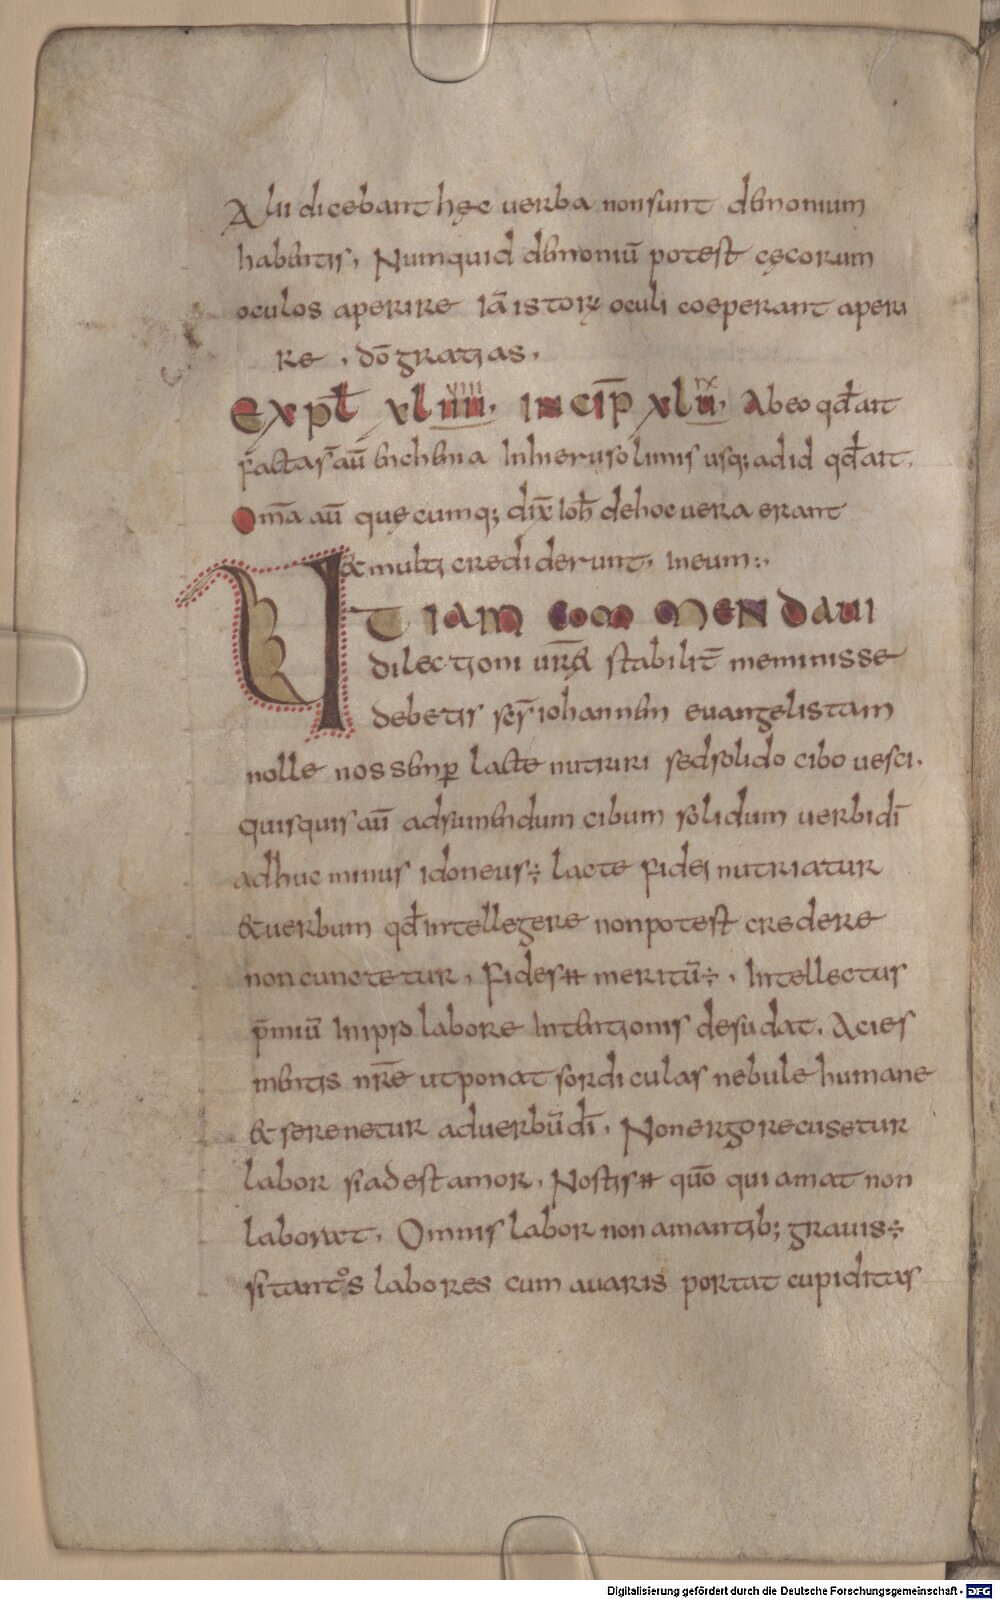 Alii dicebant hęc verba non sunt demonium
habentis, Numquid demoniū potest cęcorum
oculos aperire Iā istorꝝ oculi coeperant aperi
re . dō gratias.
Expł xluiiii. Incip̄ xluiiii. Ab eo qđ ait
facta s̄ aū enchenia In hierusolimis usq; ad id qđ ait.
Om̄a aū quęcumq; dix̄ ioh̄ de hoc vera erant
& multi crediderunt, in eum:,
UT IAM COMMENDAUI
dilectioni ur̄ę stabilit̄ meminisse
debetis sc̄s iohannem euangelistam
nolle nos semꝑ lacte nutriri sed solido cibo uesci.
quisquis aū ad sumendum cibum solidum uerbi dī
adhuc minus idoneus ÷; lacte fidei nutriatur
& uerbum qđ intellegere non potest credere
non cunctetur, fides ħ meritū ÷, Intellectus
p̄miū In ipso labore Intentionis desudat. Acies
mentis nr̄e ut ponat sordiculas nebule humane
& serenetur ad uerbū dī. Non ergo recusetur
labor si adest amor, Nostis ħ quō qui amat non
laborat. Omnis labor non amantib; grauis ÷;
si tantos labores cum auaris portat cupiditas
Digitalisierung gefördert durch die Deutsche Forschungsgemeinschaft - DFG